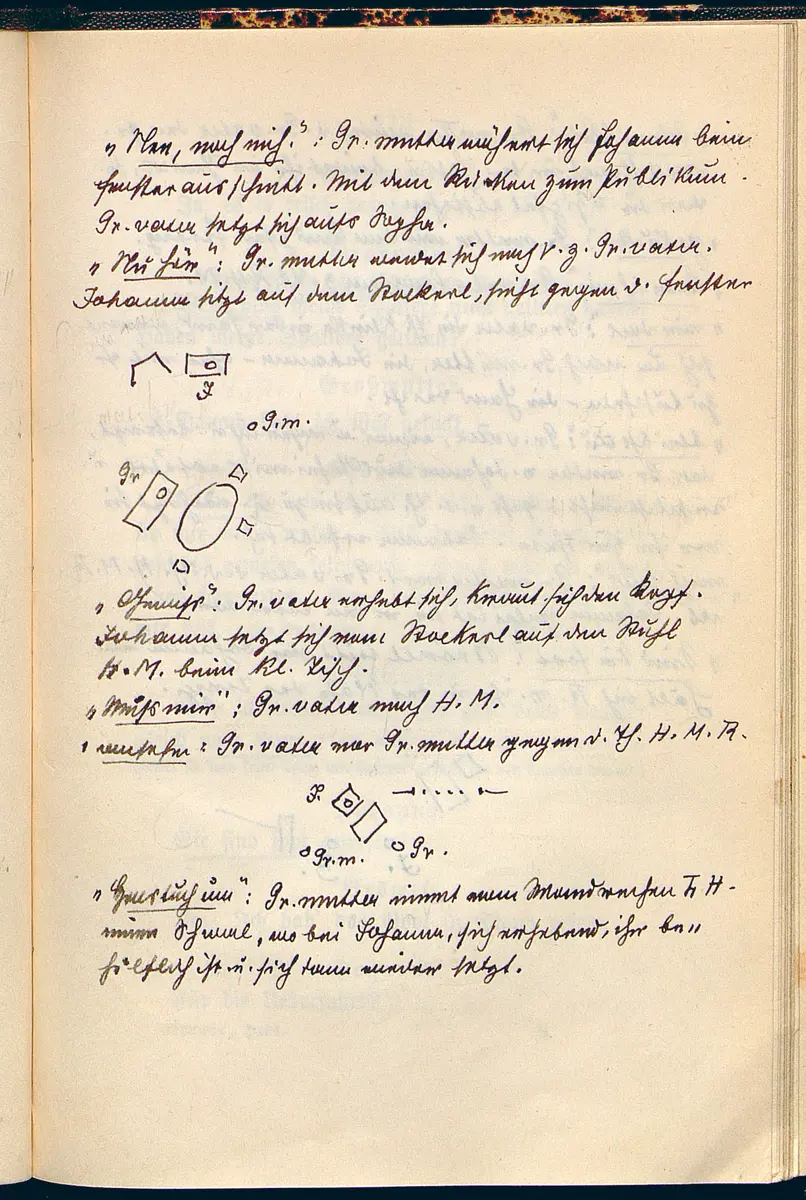 „Nee, noch nich.“: Gr. mutter nähert sich Johanna beim
Fensterausschnitt. Mit dem Rücken zum Publikum.
Gr. vater setzt sich aufs Sopha.
„Nu hör“: Gr. mutter wendet sich nach V. z. Gr. vater.
Johanna sitzt auf dem Stockerl, sieht gegen d. Fenster
J
Gr. m.
Gr
„Gewiss“: Gr. vater erhebt sich, kraut sich den Kopf.
Johanna setzt sich vom Stockerl auf den Stuhl
H. M. beim kl. Tisch.
„Muss mir“: Gr. vater nach H. M.
ansehn: Gr. vater vor Gr. mutter gegen d. Th. H. M. R.
J.
Gr. m.
Gr.
tuch um“: Gr. mutter nimmt vom Wandrechen H
einen Schwal, wobei Johanna, sich erhebend, ihr be„
hilflich ist u. sich dann wieder setzt.